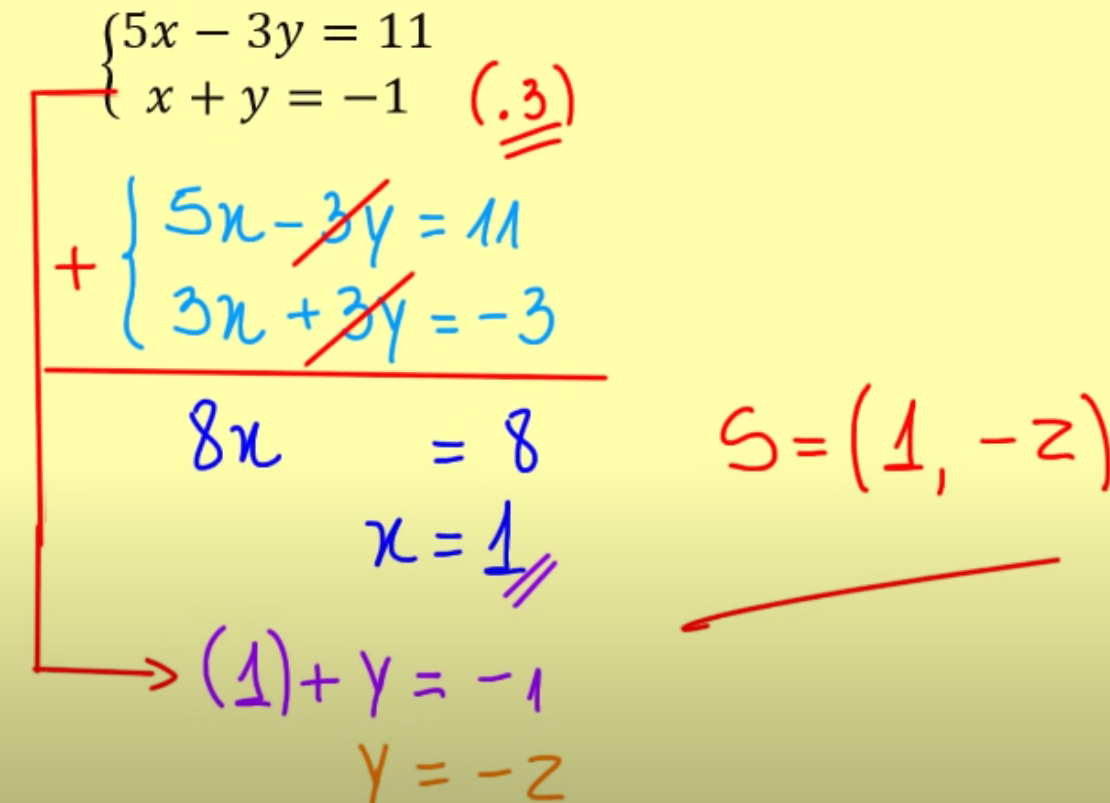 5x − 3y = 11
x + y = −1 (.3)
5x - 3y = 11
+
3x + 3y = -3
8x = 8
S = (1, -2)
x = 1
(1) + y = -1
y = -2